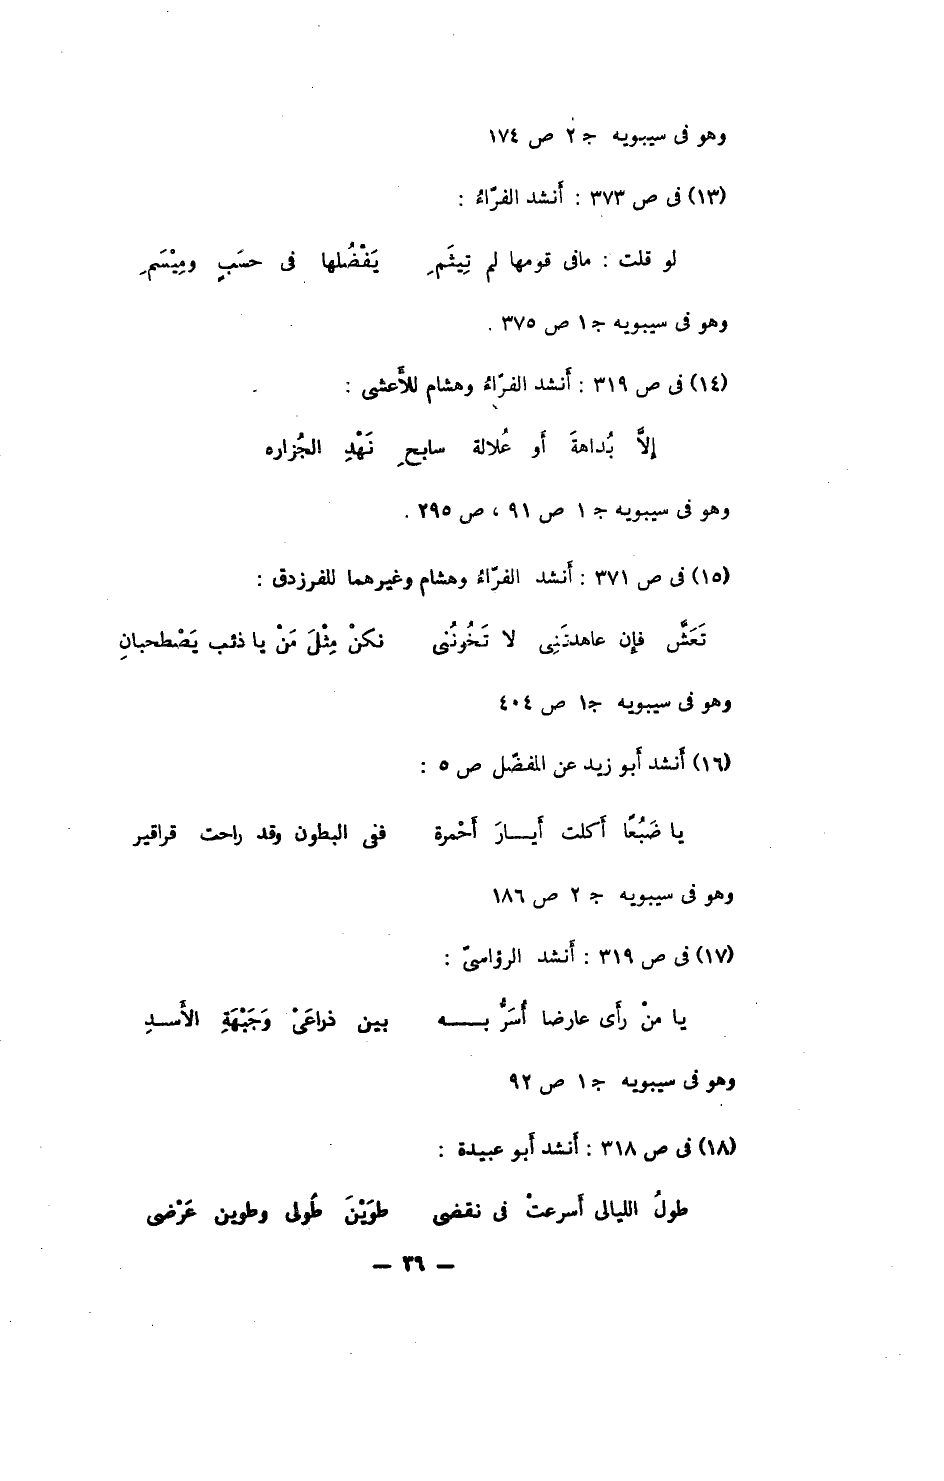 وهو فى سيبويه ج ٢ ص ١٧٤
(١٣) فى ص ٣٧٣ : أَنشد الفرّاءُ :
لو قلت : مافى قومها لم تِيثَمِ يَفْضُلها فى حسَبٍ ومِيْسَمِ
وهو فى سيبويه ج ١ ص ٣٧٥ .
(١٤) فى ص ٣١٩ : أَنشد الفرّاءُ وهشام للأَعشى :
إلاَّ بُداهةَ أَو عُلالة سابحٍ نَهْدِ الجُزاره
وهو فى سيبويه ج ١ ص ٩١ ، ص ٢٩٥ .
(١٥) فى ص ٣٧١ : أَنشد الفرّاءُ وهشام وغيرهما للفرزدق :
تَعَشَّ فإن عاهدتَنِى لا تَخُونُنى نكنْ مِثْلَ مَنْ يا ذئب يَصْطحبانِ
وهو فى سيبويه ج١ ص ٤٠٤
(١٦) أَنشد أَبو زيد عن المفضّل ص ٥ :
يا ضَبُعًا أَكلت أَيــارَ أَحْمرة ففى البطون وقد راحت قراقير
وهو فى سيبويه ج ٢ ص ١٨٦
(١٧) فى ص ٣١٩ : أَنشد الرؤاسىّ :
يا منْ رأَى عارضا أُسَرُّ بــه بين ذراعَىْ وَجَبْهَةِ الأَســدِ
وهو فى سيبويه ج ١ ص ٩٢
(١٨) فى ص ٣١٨ : أَنشد أَبو عبيدة :
طولُ الليالى أَسرعتْ فى نقضى طوَيْنَ طُولى وطوين عَرْضى
— ٣٩ —